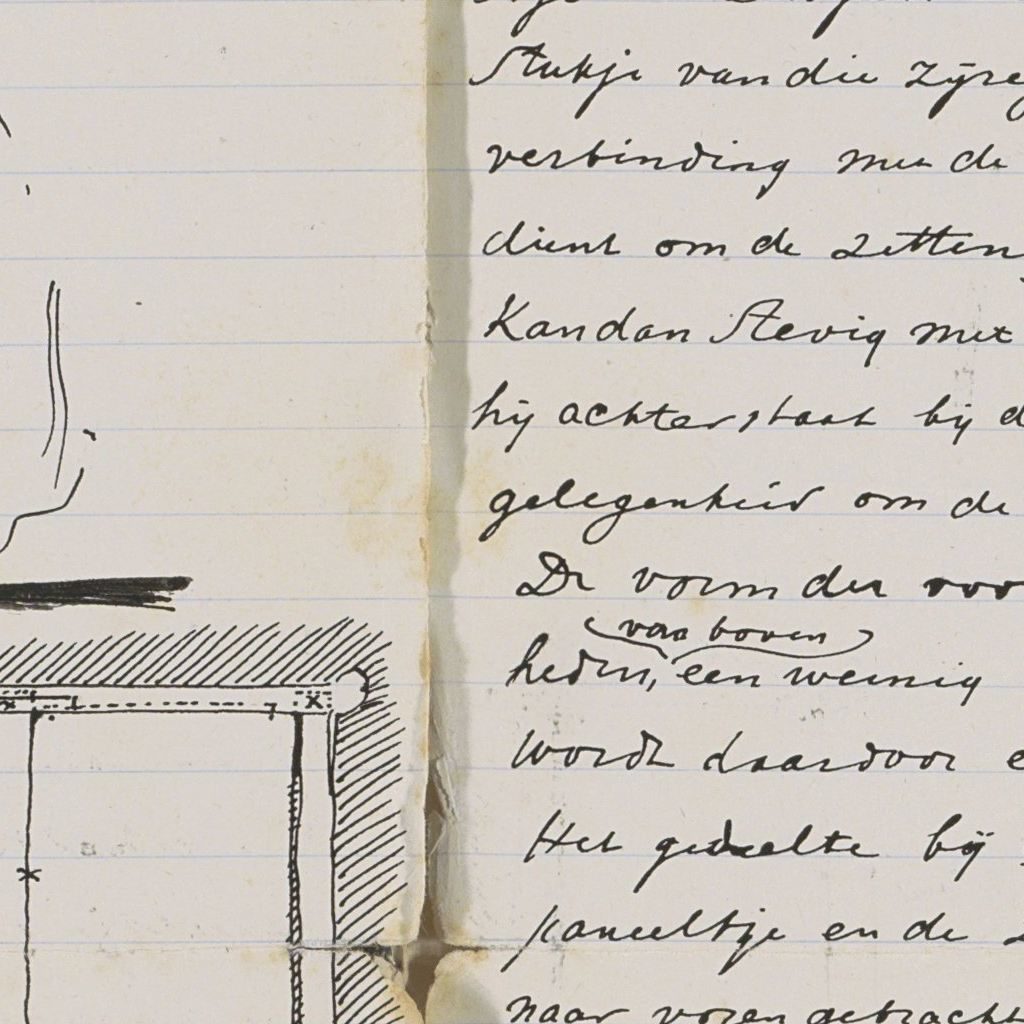 Stukje van die
verbinding met de
dient om de zetten
Kan dan Stevig met
hij achter staat bij
gelegenheid om de
De vorm der
van boven
heden, een weinig
wordt daardoor
Het gedeelte bij
paneeltje en de
naar voren gebracht